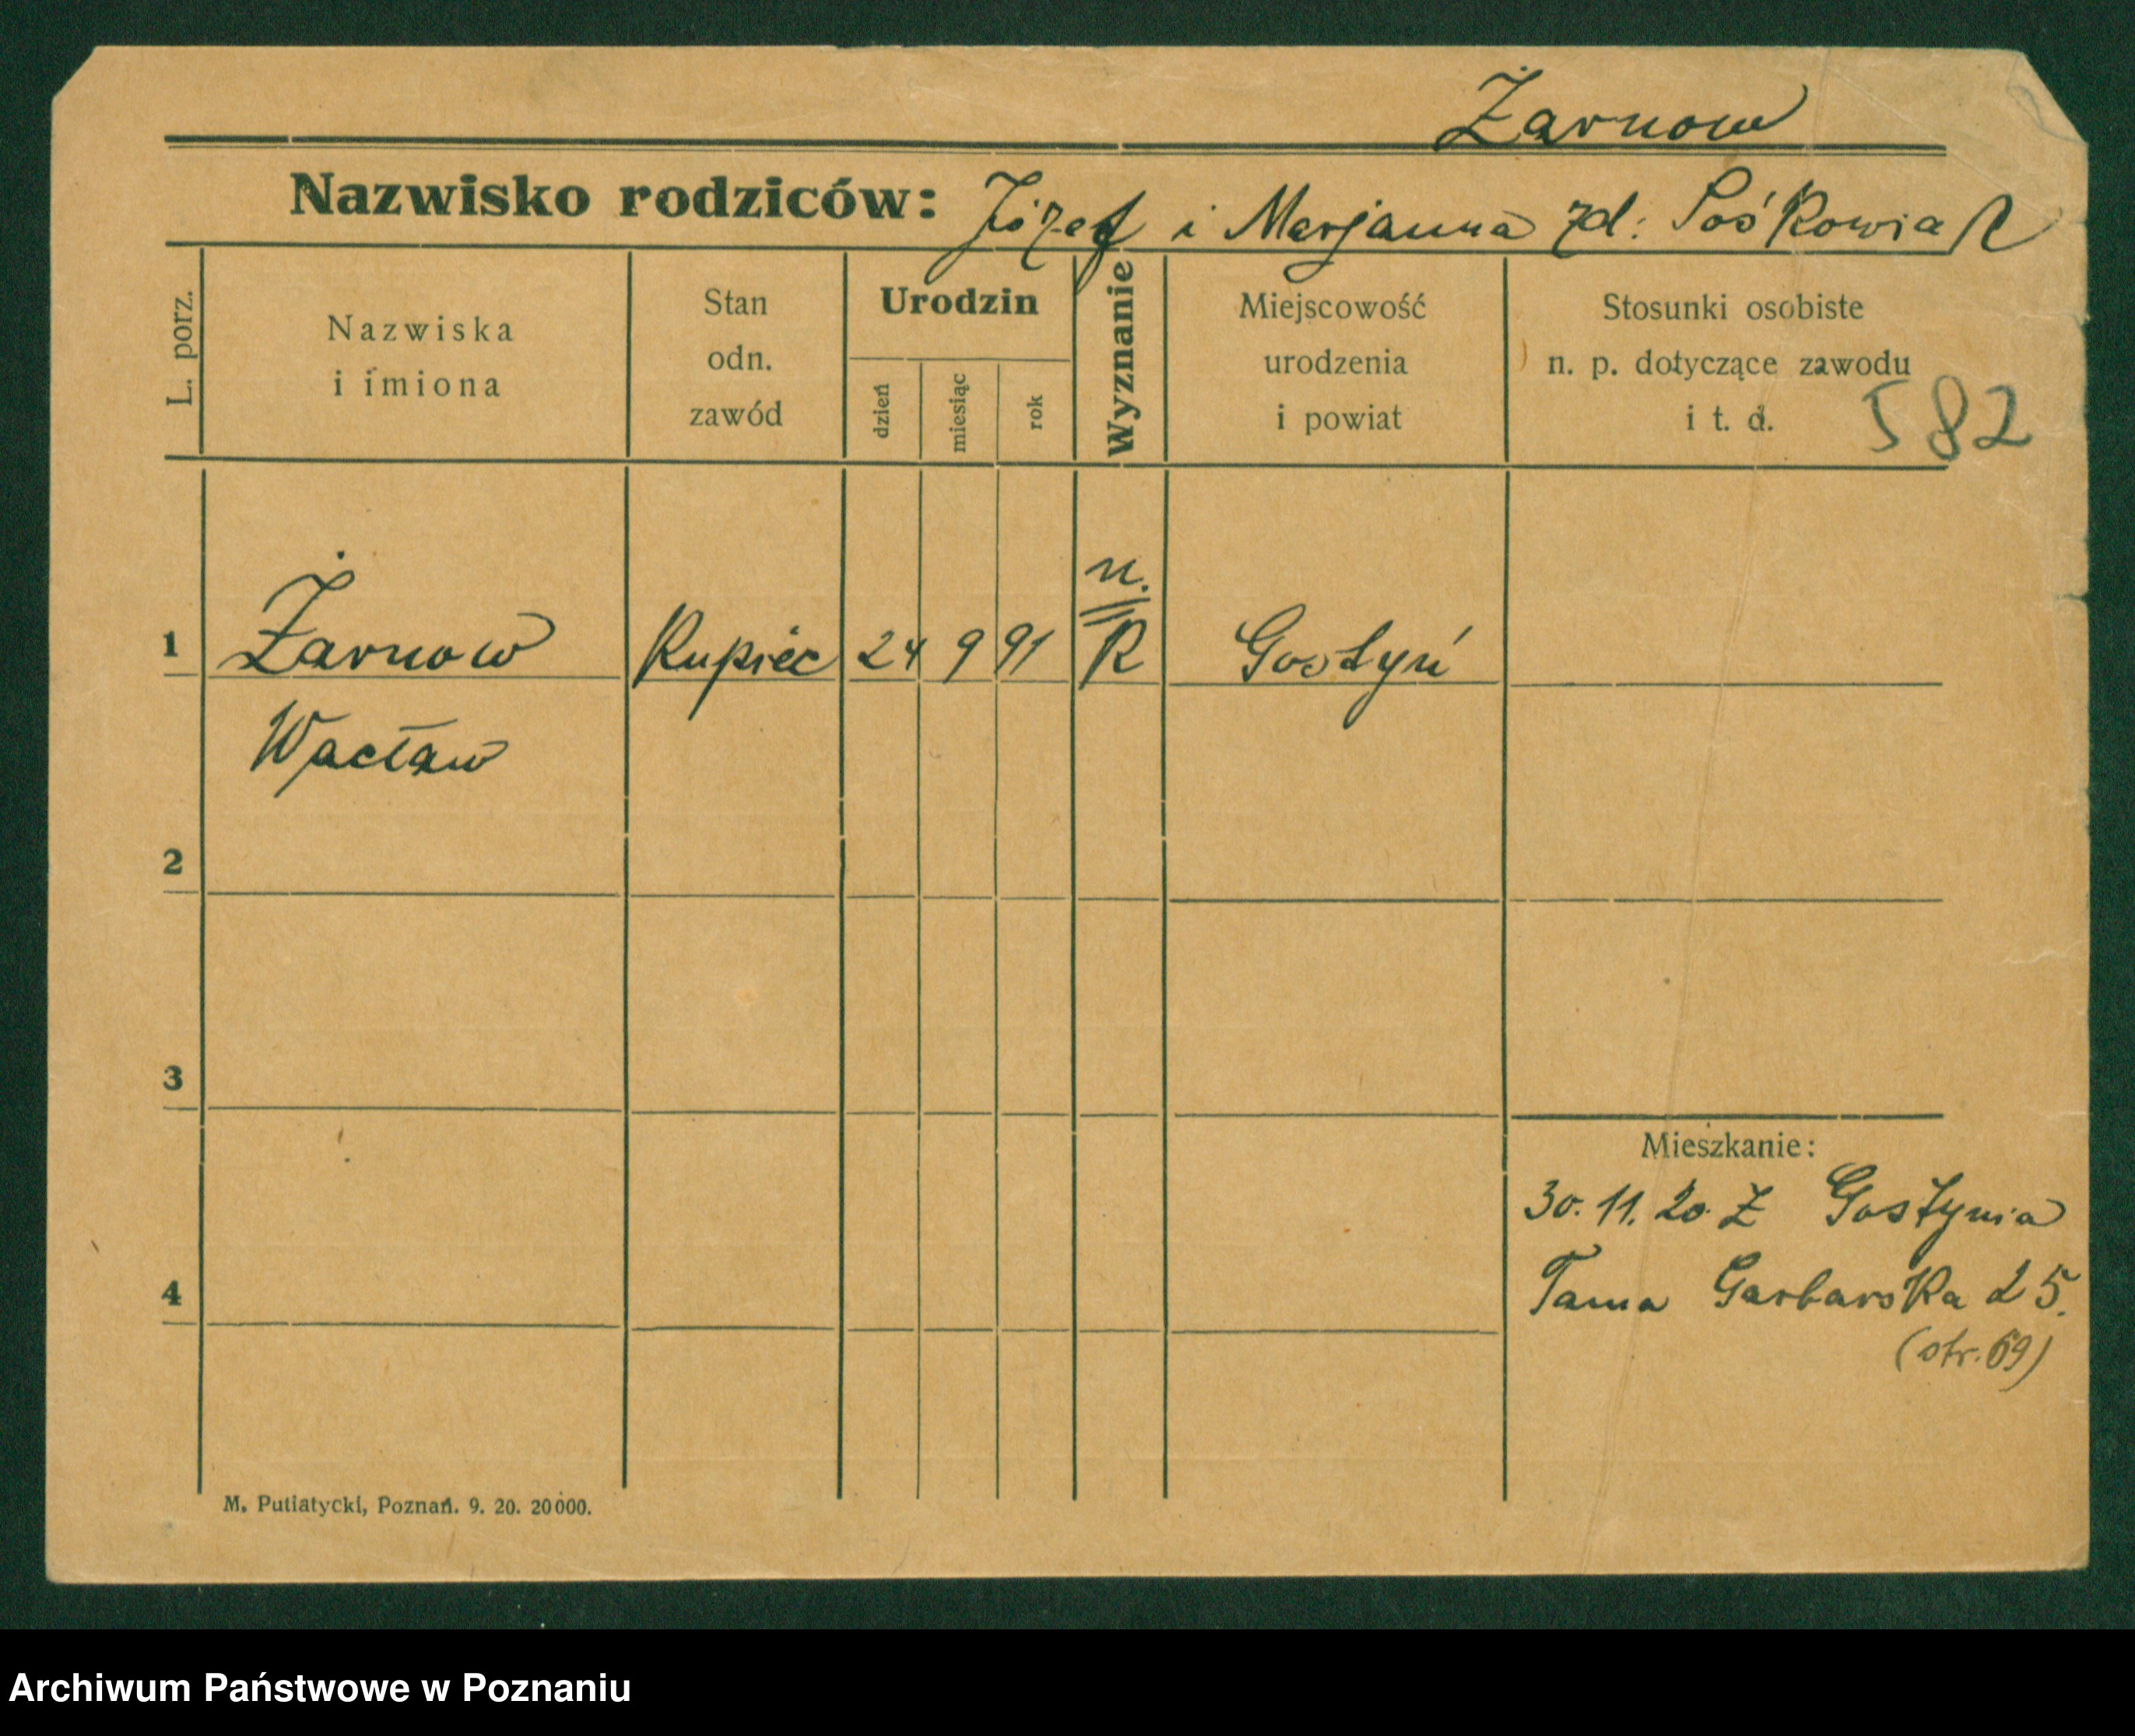 Żarnow
Nazwisko rodziców: Józef i Marjanna zd: Pośkowiak
L. porz.
Nazwiska
i imiona
Stan
odn.
zawód
Urodzin
dzień
miesiąc
rok
Wyznanie
Miejscowość
urodzenia
i powiat
Stosunki osobiste
n. p. dotyczące zawodu
i t. d.
582
n.
1 Żarnow Kupiec 24 9 91 R Gostyń
Wacław
2
3
Mieszkanie:
30. 11. 20. Z Gostynia
4 Tama Garbarska 25.
(str. 69)
M. Putiatycki, Poznań. 9. 20. 20000.
Archiwum Państwowe w Poznaniu